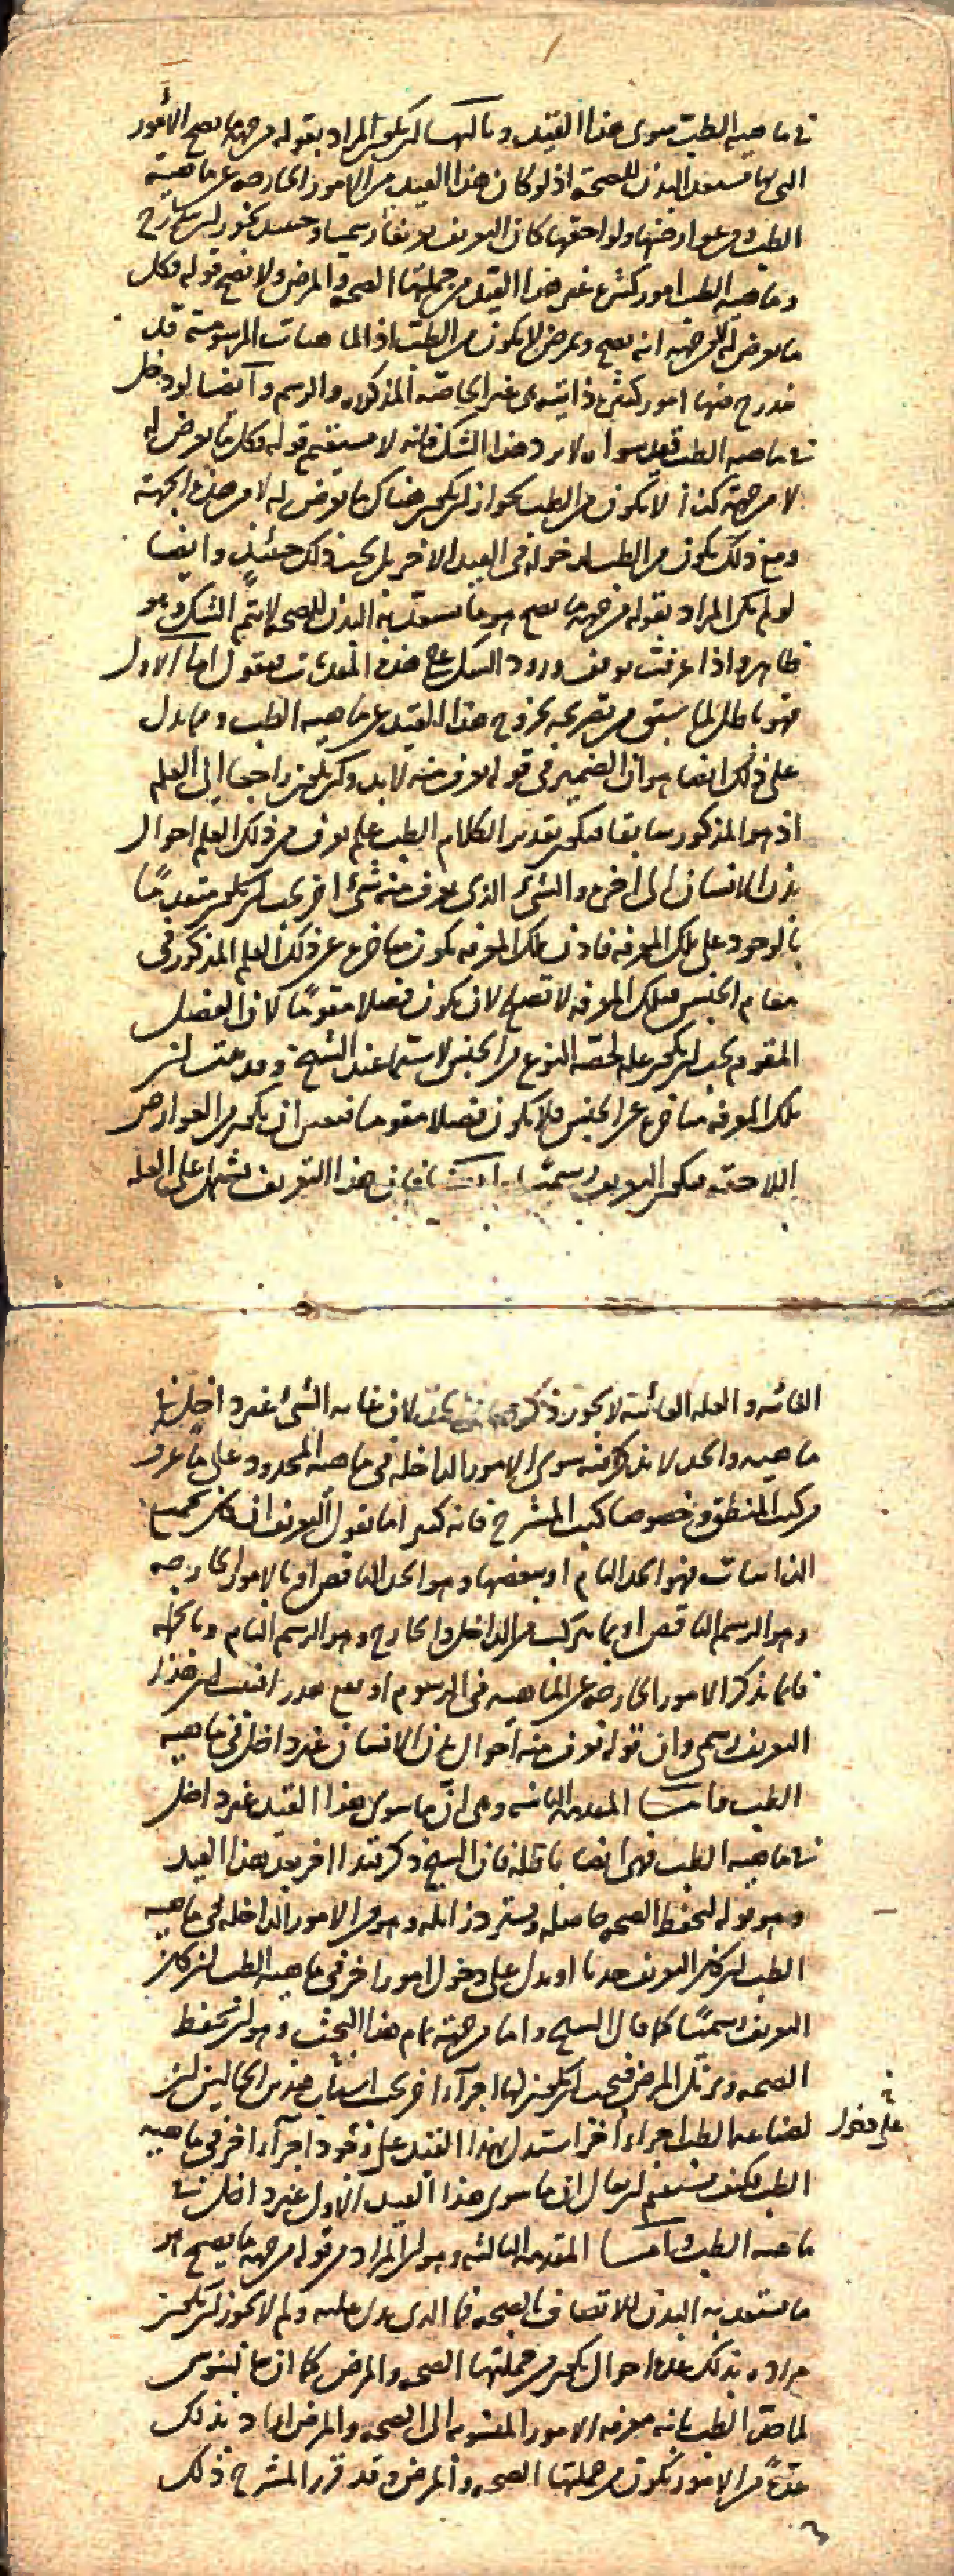 في ماهية الطب سوى هذا القيد وثالثها ان يكون المراد بقوله من جهة ما يصح الأمور
التي بها يستعد البدن للصحة اذ لو كان هذا القيد من الامور الخارجة عن ماهية
الطب ومن عوارضها ولواحقها كان التعريف تعريفا رسميا وحينئذ يجوز ان يندرج
في ماهية الطب امور كثيرة غير هذا القيد من جملتها الصحة والمرض ولا يصح قوله فكل
ما يعرض له لا من جهة انه يصح ويمرض لا يكون من الطب اذ الماهيات المرسومة قد
يندرج فيها امور كثيرة ذاتية سوى غير الخاصة المذكورة والرسم وأيضا لو دخل
في ماهية الطب قيد سواه لا يرد هذا الشك فانه لا يستقيم قوله فكل ما يعرض له
لا من جهة كذا لا يكون من الطب لجواز ان يكون هناك ما يعرض له لا من هذه الجهة
ومع ذلك يكون من الطب لدخوله في القيد الاخر بل يجب ذلك حينئذ وايضا
لو لم يكن المراد بقوله من جهة ما يصح هو ما يستعد به البدن للصحة لا يتم الشك وهو
ظاهر واذا عرفت توقف ورود الشك على هذه المقدمات فنقول اما الاول
فهو باطل لما سبق من تصريحه بخروج هذا القيد عن ماهية الطب ومما يدل
على ذلك ايضا هو ان الضمير في قوله يعرف منه لا بد وان يكون راجعا الى العلم
اذ هو المذكور سابقا فيكون تقدير الكلام الطب علم يعرف من ذلك العلم احوال
بدن الانسان الى اخره والشيء الذي يعرف منه شيء اخر يجب ان يكون متقدما
بالوجود على تلك المعرفة فاذن تلك المعرفة يكون متاخرة عن ذلك العلم المذكور في
مقام الجنس فتلك المعرفة لا تصلح لان يكون فصلا مقوما لان الفصل
المقوم يجب ان يكون علة لحصة النوع من الجنس لا سيما عند الشيخ وقد بينت ان
تلك المعرفة متاخرة عن الجنس فلا يكون فصلا مقوما فتعين ان يكون من العوارض
اللاحقة فيكون التعريف رسميا وايضا فان هذا التعريف يشتمل على العلة
الغائية والعلة الغائية لا يجوز ذكرها في الحد لان غاية الشيء غير داخل في
ماهيته والحد لا يذكر فيه سوى الامور الداخلة في ماهية المحدود على ما عرف
من كتب المنطق وخصوصا كتب المشرح فانه كثيرا ما يقول التعريف ان كان بجميع
الذاتيات فهو الحد التام او ببعضها وهو الحد الناقص او بالامور الخارجة
وهو الرسم الناقص او بما يتركب من الداخل والخارج وهو الرسم التام وبالجملة
فانما يذكر الامور الخارجة عن الماهية في الرسوم
التعريف رسمي وان قوله تعرف منه احوال بدن الانسان غير داخل في ماهية
الطب واما المقدمة الثانية وهي ان ما سوى هذا القيد غير داخل
في ماهية الطب فهي ايضا باطلة فان الشيخ ذكر قيدا اخر بعد هذا القيد
وهو قوله لتحفظ الصحة حاصلة وتسترد زائلة وهو من الامور الداخلة في ماهية
الطب ان كان التعريف حديا او يدل على دخول امور اخر في ماهية الطب ان كان
التعريف رسميا كما قال الشيخ واما من جهة تمام هذا البحث وهو ان تحفظ
الصحة وتزيل المرض فيجب ان يكون لها اجزاء اخر بحسب اسباب هذين الحالين
لصناعة الطب اجزاء اخر استدل بهذا القيد على وجود اجزاء اخر في ماهية
على دخول
الطب فكيف يستقيم ان يقال ان ما سوى هذا القيد الاول غير داخل في
ماهية الطب واما المقدمة الثالثة وهو ان المراد من قوله من جهة ما يصح هو
ما يستعد به البدن للاتصاف بالصحة فما الذي يدل عليه ولم لا يجوز ان يكون
مراده بذلك عدة احوال يكون من جملتها الصحة والمرض كما ان جالينوس
لما حد الطب بانه معرفة الامور المنسوبة الى الصحة والمرض اراد بذلك
عدة من الامور تكون من جملتها الصحة والمرض وقد قرر المشرح ذلك